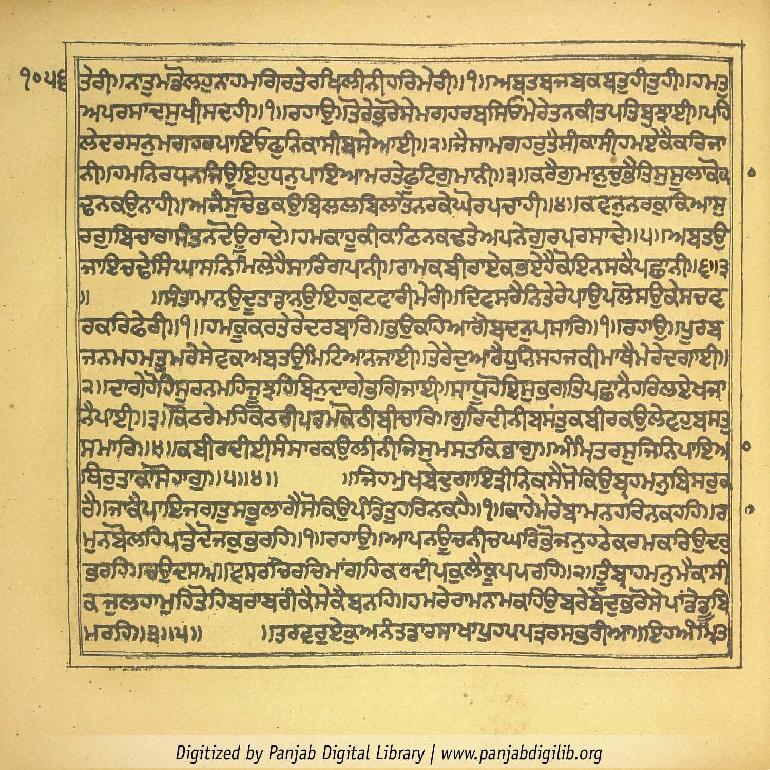 ੧੦੫੬ ਤੇਰੀ॥ਨਾਤੁਮਡੋਲਹੁਨਾਹਮਗਿਰਤੇਰਖਿਲੀਨੀਹਰਿਮੇਰੀ॥੧॥ਅਬਤਬਜਬਕਬਤੁਹੀਤੁਹੀ॥ਹਮਤੁ
ਅਪਰਸਾਦਸੁਖੀਸਦਹੀ॥੧॥ਰਹਾਉ॥ਤੋਰੇਭਰੋਸੇਮਗਹਰਬਸਿਓਮੇਰੇਤਨਕੀਤਪਤਿਬੁਝਾਈ॥ਪਹਿ
ਲੇਦਰਸਨੁਮਗਹਰਪਾਇਓਫੁਨਿਕਾਸੀਬਸੇਆਈ॥੨॥ਜੈਸਾਮਗਹਰੁਤੈਸੀਕਾਸੀਹਮਏਕੈਕਰਿਜਾ
ਨੀ॥ਹਮਨਿਰਧਨਜਿਉਇਹੁਧਨੁਪਾਇਆਮਰਤੇਫੂਟਿਗੁਮਾਨੀ॥੩॥ਕਰੈਗੁਮਾਨੁਚੁਭੈਤਿਸੁਸੂਲਾਕੋਕਾ
ਢਨਕਉਨਾਹੀ॥ਅਜੈਸੁਚੋਭਕਉਬਿਲਲਬਿਲਾਤੇਨਰਕੇਘੋਰਪਚਾਹੀ॥੪॥ਕਵਨੁਨਰਕੁਕਿਆਸੁ
ਰਗੁਬਿਚਾਰਾਸੰਤਨਦੋਊਰਾਦੇ॥ਹਮਕਾਹੂਕੀਕਾਣਿਨਕਢਤੇਅਪਨੇਗੁਰਪਰਸਾਦੇ॥੫॥ਅਬਤਉ
ਜਾਇਚਢੇਸਿੰਘਾਸਨਿਮਿਲੇਹੈਸਾਰਿੰਗਪਨੀ॥ਰਾਮਕਬੀਰਾਏਕਭਏਹੈਕੋਇਨਸਕੈਪਛਾਨੀ॥੬॥੩
॥ ॥ਸੰਤਾਮਾਨਉਦੂਤਾਡਾਨਉਇਹਕੁਟਵਾਰੀਮੇਰੀ॥ਦਿਵਸਰੈਨਿਤੇਰੇਪਾਉਪਲੋਸਉਕੇਸਚਵ
ਰਕਰਿਫੇਰੀ॥੧॥ਹਮਕੂਕਰਤੇਰੇਦਰਬਾਰਿ॥ਭਉਕਹਿਆਗੈਬਦਨੁਪਸਾਰਿ॥੧॥ਰਹਾਉ॥ਪੂਰਬ
ਜਨਮਹਮਤੁਮਰੇਸੇਵਕਅਬਤਉਮਿਟਿਆਨਜਾਈ॥ਤੇਰੇਦੁਆਰੈਧੁਨਿਸਹਜਕੀਮਾਥੈਮੇਰੇਦਗਾਈ॥
੨॥ਦਾਗੇਹੋਹਿਸੁਰਨਮਹਿਜੂਝਹਿਬਿਨੁਦਾਗੇਭਗਿਜਾਈ॥ਸਾਧੂਹੋਇਸੁਭਗਤਿਪਛਾਨੈਹਰਿਲਏਖਜਾ
ਨੈਪਾਈ॥੩॥ਕੋਠਰੇਮਹਿਕੋਠਰੀਪਰਮਕੋਠੀਬੀਚਾਰਿ॥ਗੁਰਿਦੀਨੀਬਸਤੁਕਬੀਰਕਉਲੇਵਹੁਬਸਤੁ
ਸਮਾਰਿ॥੪॥ਕਬੀਰਦੀਈਸੰਸਾਰਕਉਲੀਨੀਜਿਸੁਮਸਤਕਿਭਾਗੁ॥ਅੰਮ੍ਰਿਤਰਸੁਜਿਨਿਪਾਇਆ
ਥਿਰੁਤਾਕਾਸੋਹਾਗੁ॥੫॥੪॥ ॥ਜਿਹਮੁਖਬੇਦੁਗਾਇਤ੍ਰੀਨਿਕਸੈਸੋਕਿਉਬ੍ਰਹਮਨੁਬਿਸਰੁਕ
ਰੈ॥ਜਾਕੈਪਾਇਜਗਤੁਸਭੁਲਾਗੈਸੋਕਿਉਪੰਡਿਤੁਹਰਿਨਕਹੈ॥੧॥ਕਾਹੇਮੇਰੇਬਾਮਨਹਰਿਨਕਹਹਿ॥ਰਾ
ਮੁਨਬੋਲਹਿਪਾਡੇਦੋਜਕੁਭਰਹਿ॥੧॥ਰਹਾਉ॥ਆਪਨਊਚਨੀਚਘਰਿਭੋਜਨੁਹਠੇਕਰਮਕਰਿਉਦਰੁ
ਭਰਹਿ॥ਚਉਦਸਅਮਾਵਸਰਚਿਰਚਿਮਾਂਗਹਿਕਰਦੀਪਕੁਲੈਕੂਪਪਰਹਿ॥੨॥ਤੂੰਬ੍ਰਹਮਨੁਮੈਕਾਸੀ
ਕਜੁਲਹਾਮੁਹਿਤੋਹਿਬਰਾਬਰੀਕੈਸੇਕੈਬਨਹਿ॥ਹਮਰੇਰਾਮਨਾਮਕਹਿਉਬਰੇਬੇਦਭਰੋਸੇਪਾਂਡੇਡੂਬਿ
ਮਰਹਿ॥੩॥੫॥ ॥ਤਰਵਰੁਏਕੁਅਨੰਤਡਾਰਸਾਖਾਪੁਹਪਪਤ੍ਰਰਸਭਰੀਆ॥ਇਹਅੰਮ੍ਰਿਤ
Digitized by Panjab Digital Library | www.panjabdigilib.org